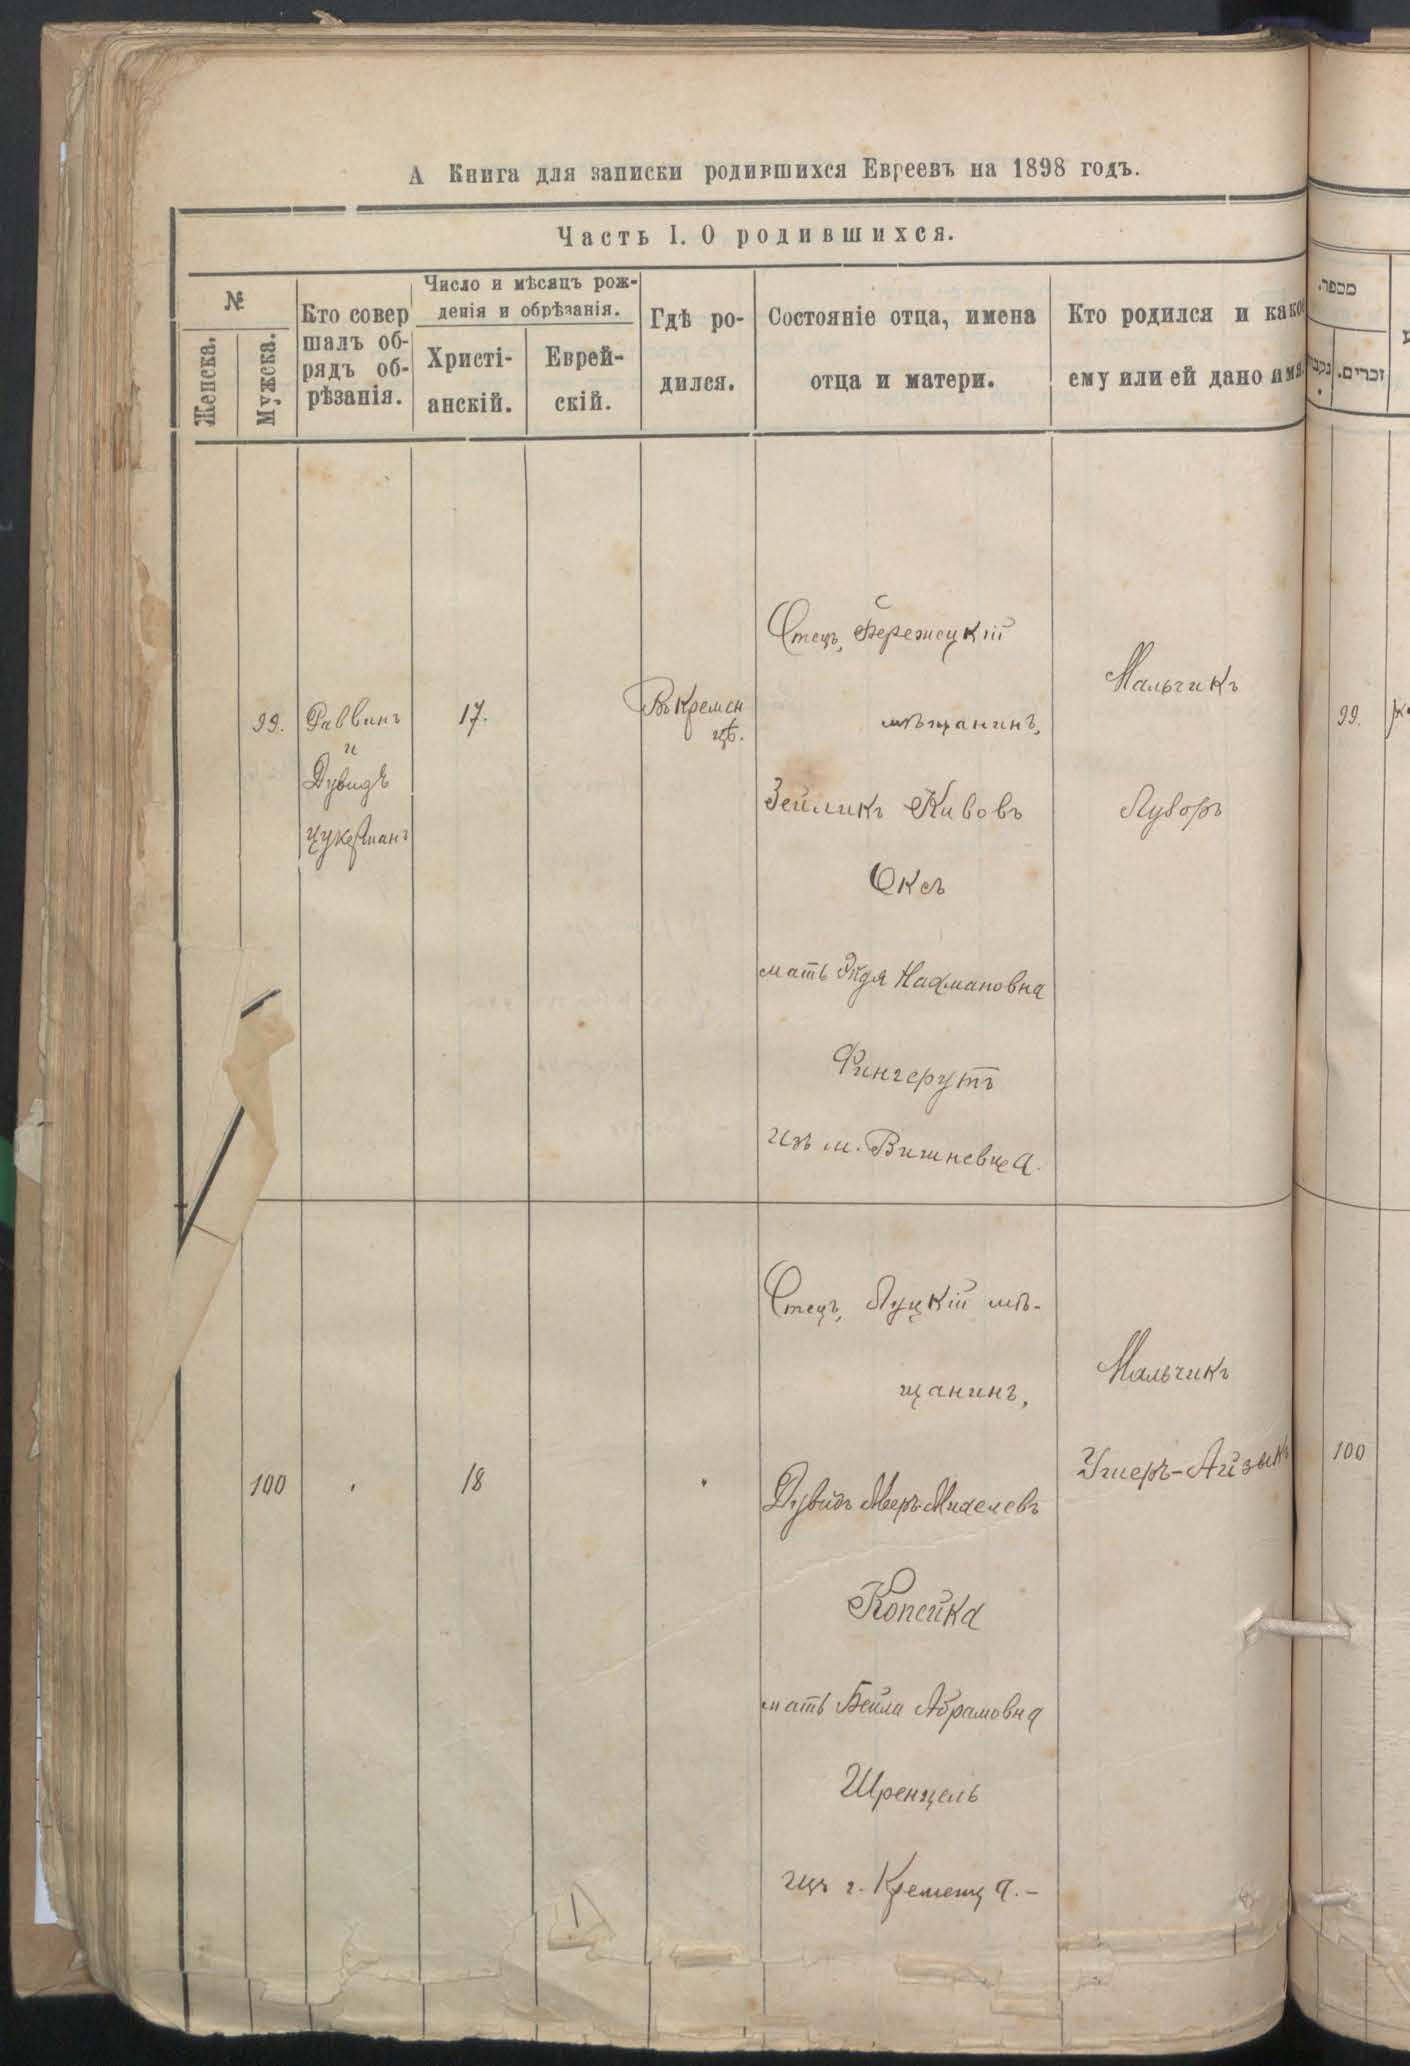 А Книга для записки родившихся Евреевъ на 1898 годъ.
Часть I. О родившихся.
№
Женска.
Мужска.
Кто совер
шалъ об-
рядъ об-
рѣзанія.
Число и мѣсяцъ рож-
денія и обрѣзанія.
Христі-
анскій.
Еврей-
скій.
Гдѣ ро-
дился.
Состояніе отца, имена
отца и матери.
Кто родился и какое
ему или ей дано имя.
מספר.
זכרים.
99.
Раввинъ
и
Дувидъ
Цукерманъ
17.
Въ Кремен
цѣ.
Отецъ, Бережецкій
мѣщанинъ,
Зейликъ Кивовъ
Оксъ
мать Эйдя Нахмановна
Фингерутъ
изъ м. Вишневца.
Мальчикъ
Лузоръ
99.
100
18
Отецъ, Луцкій мѣ-
щанинъ,
Дувидъ Меръ-Михелевъ
Копейка
мать Бейла Абрамовна
Шренцель
изъ г. Кременца.-
Мальчикъ
Ушеръ-Айзыкъ
100